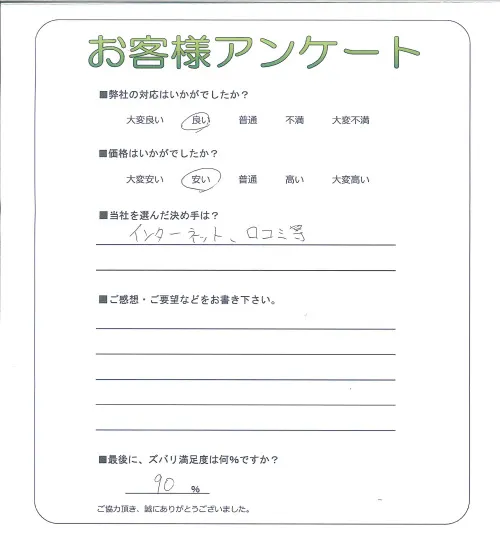 お客様アンケート
■弊社の対応はいかがでしたか？
大変良い 良い 普通 不満 大変不満
■価格はいかがでしたか？
大変安い 安い 普通 高い 大変高い
■当社を選んだ決め手は？
インターネット、口コミ等
■ご感想・ご要望などをお書き下さい。
■最後に、ズバリ満足度は何%ですか？
90 %
ご協力頂き、誠にありがとうございました。